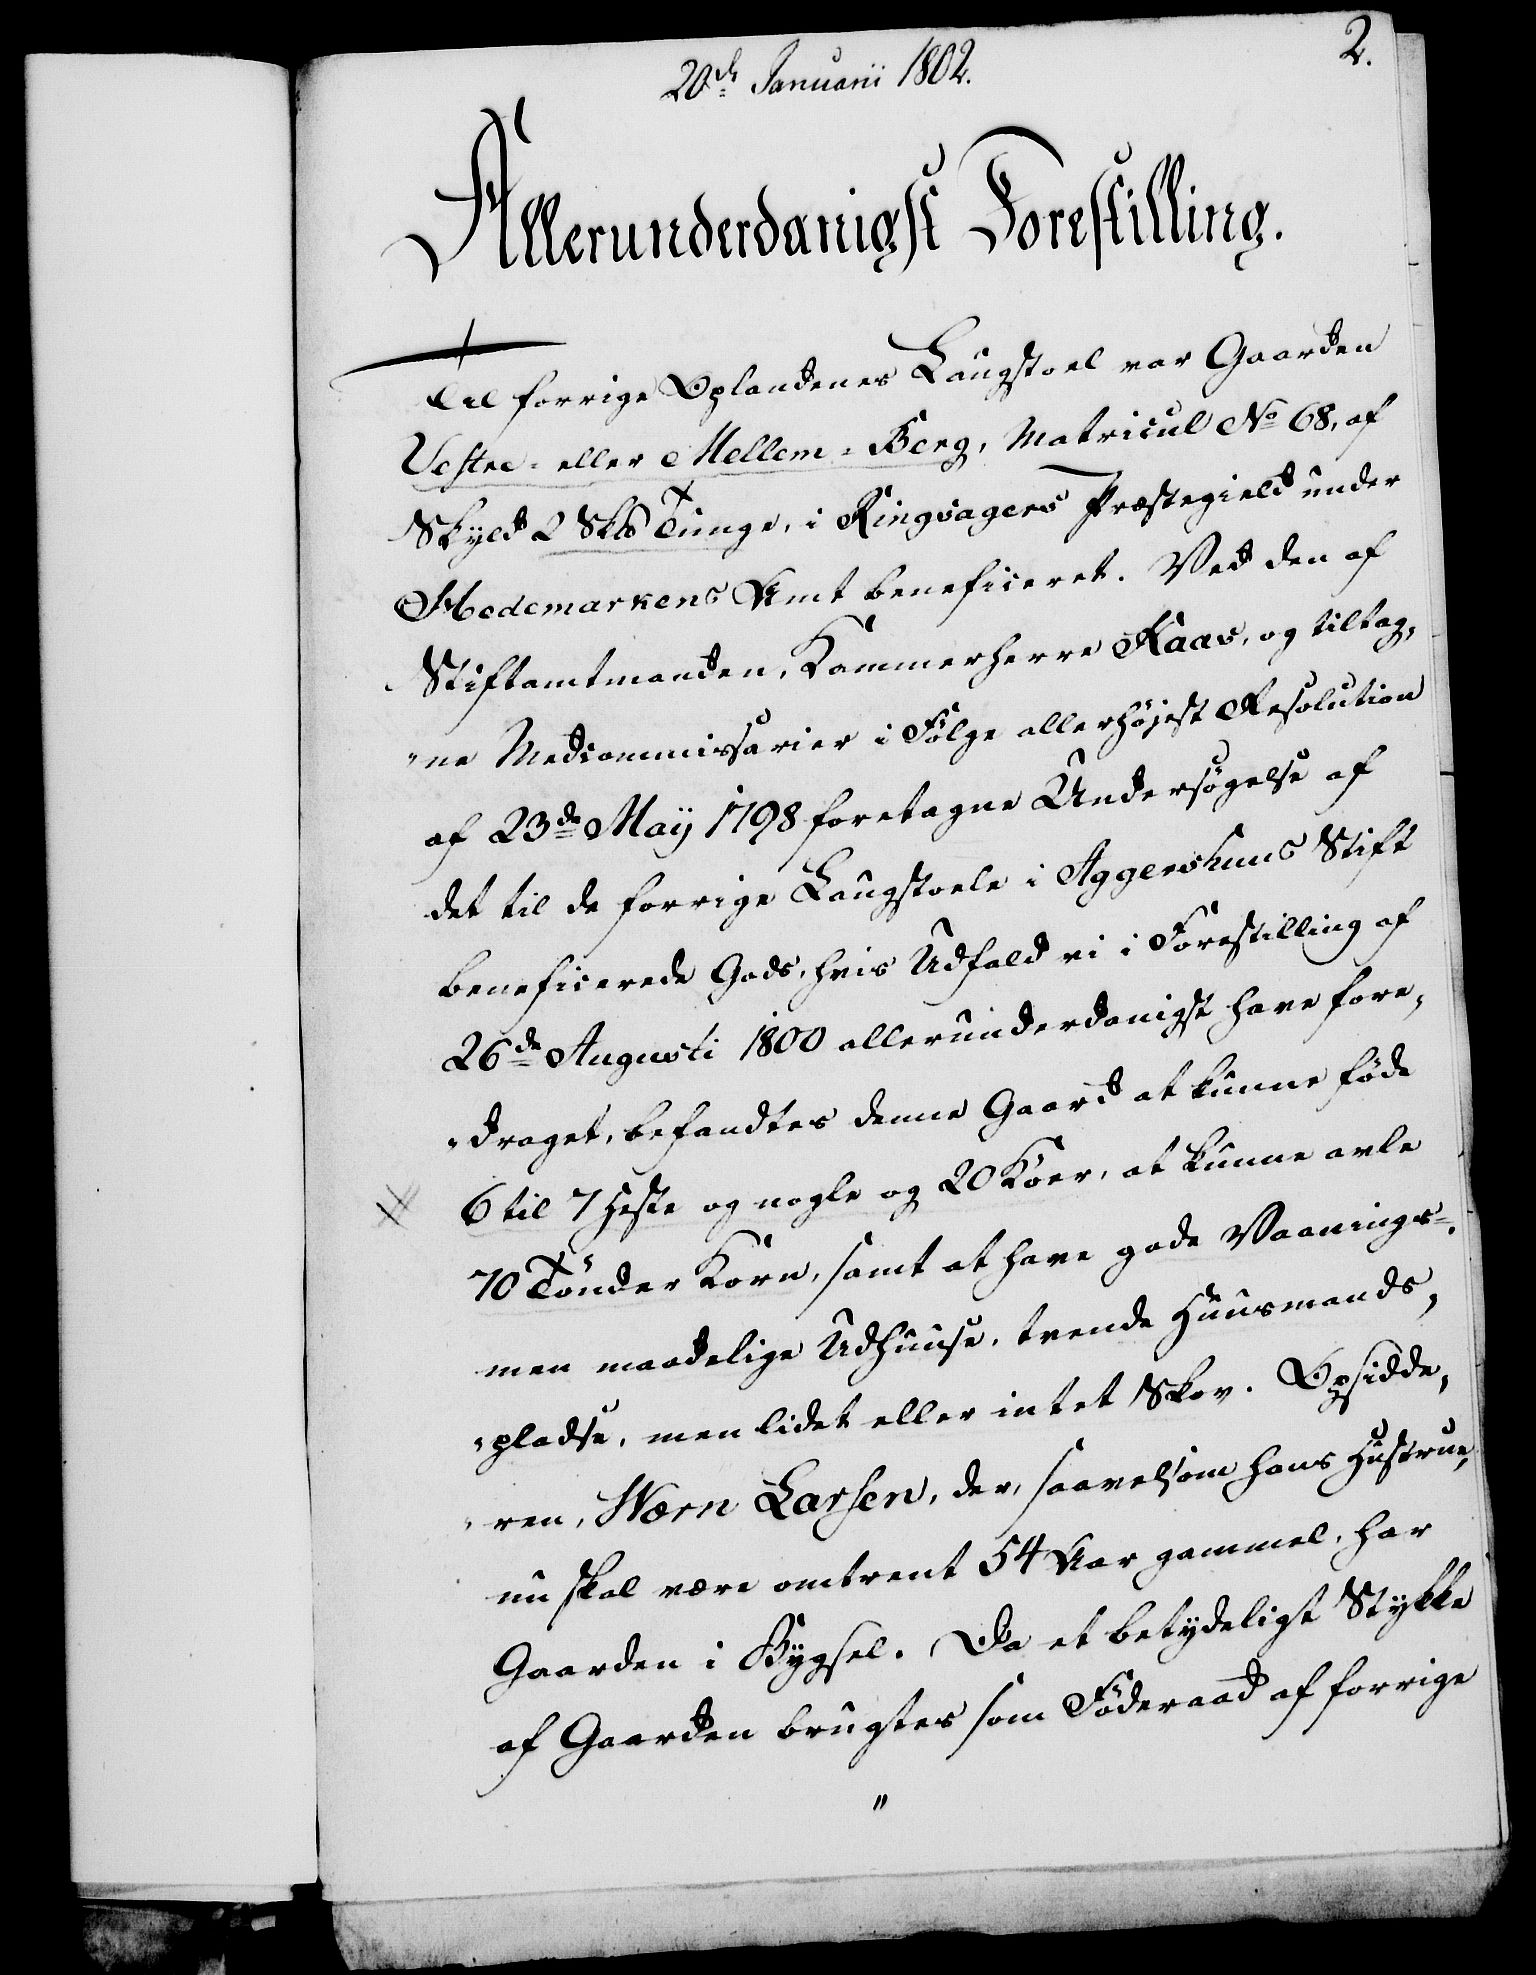 20de Januarii 1802.
2.
Allerunderdanigst Forestilling.
Til forrige Oplandenes Laugstoel var Gaarden
Vestre- eller Mellem-Berg, Matricul No 68, af
Skyld 2 Skd Tunge, i Ringsagers Præstegield under
Hedemarkens Amt beneficeret. Ved den af
Stiftamtmanden, Kammerherre Kaas, og tiltag,
"ne Medcommissarier i Følge allerhøjest Resolution
af 23de Maij 1798 foretagne Undersøgelse af
det til de forrige Laugstoele i Aggershuus Stift
beneficerede Gods, hvis Udfald vi i Forestilling af
26de Augusti 1800 allerunderdanigst have fore,
"draget, befandtes denne Gaard at kunne føde
6 til 7 Heste og nogle og 20 Köer, at kunne avle
70 Tönder Korn, samt at have gode Vaanings-
men maadelige Udhuuse, trende Huusmands,
"pladse, men lidet eller intet Skov. Opsidde,
"ren, Nærn Larsen, der, saavelsom hans Hustrue,
nu skal være omtrent 54 Aar gammel, har
Gaarden i Bygsel. Da et betydeligt Stykke
af Gaarden brugtes som Föderaad af forrige
"